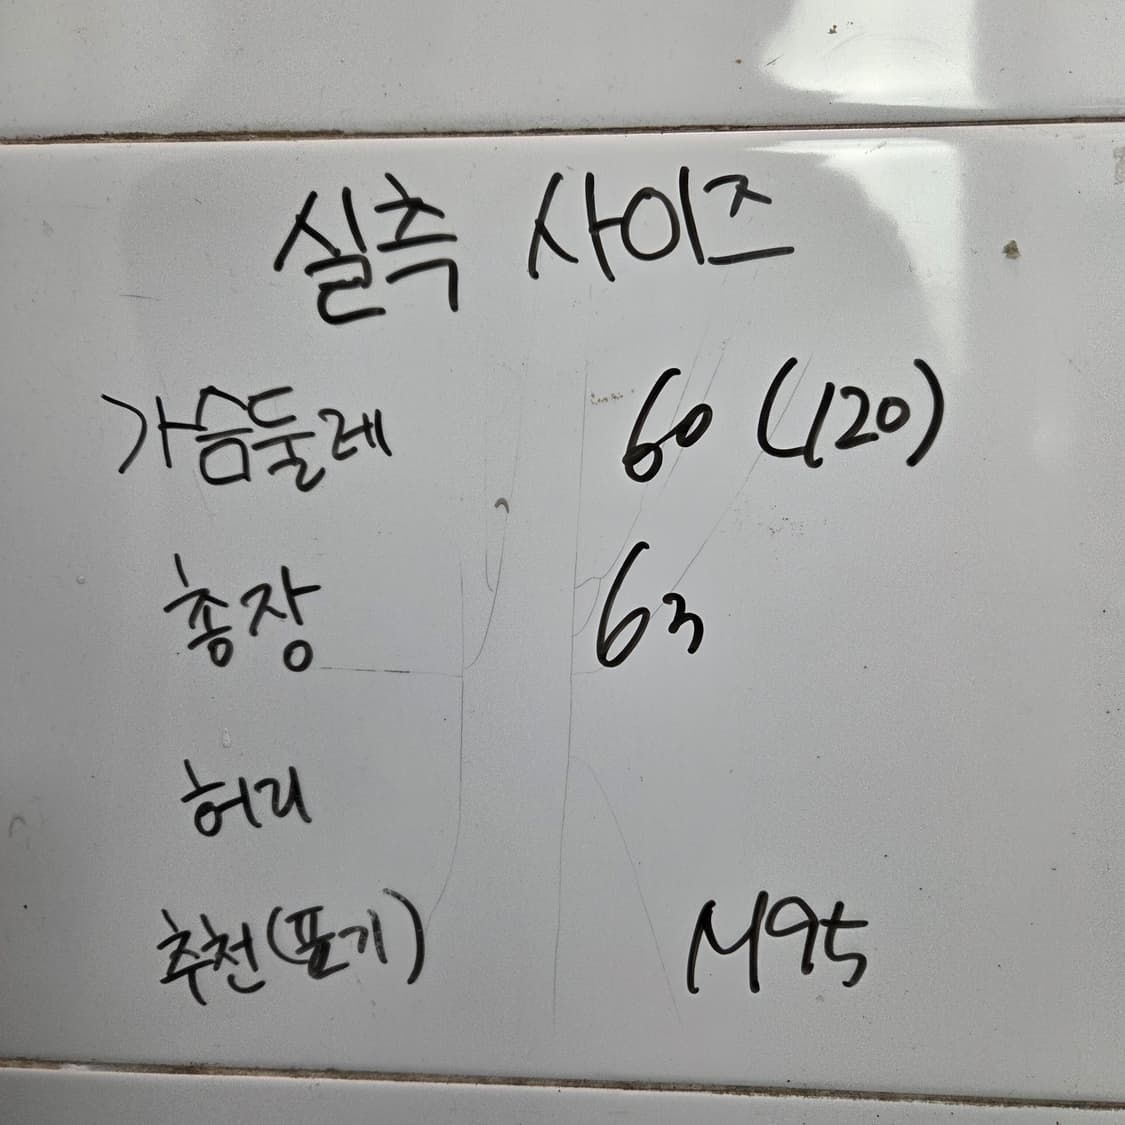 실측 사이즈
가슴둘레 60 (120)
총장 63
허리
추천(표기) M95